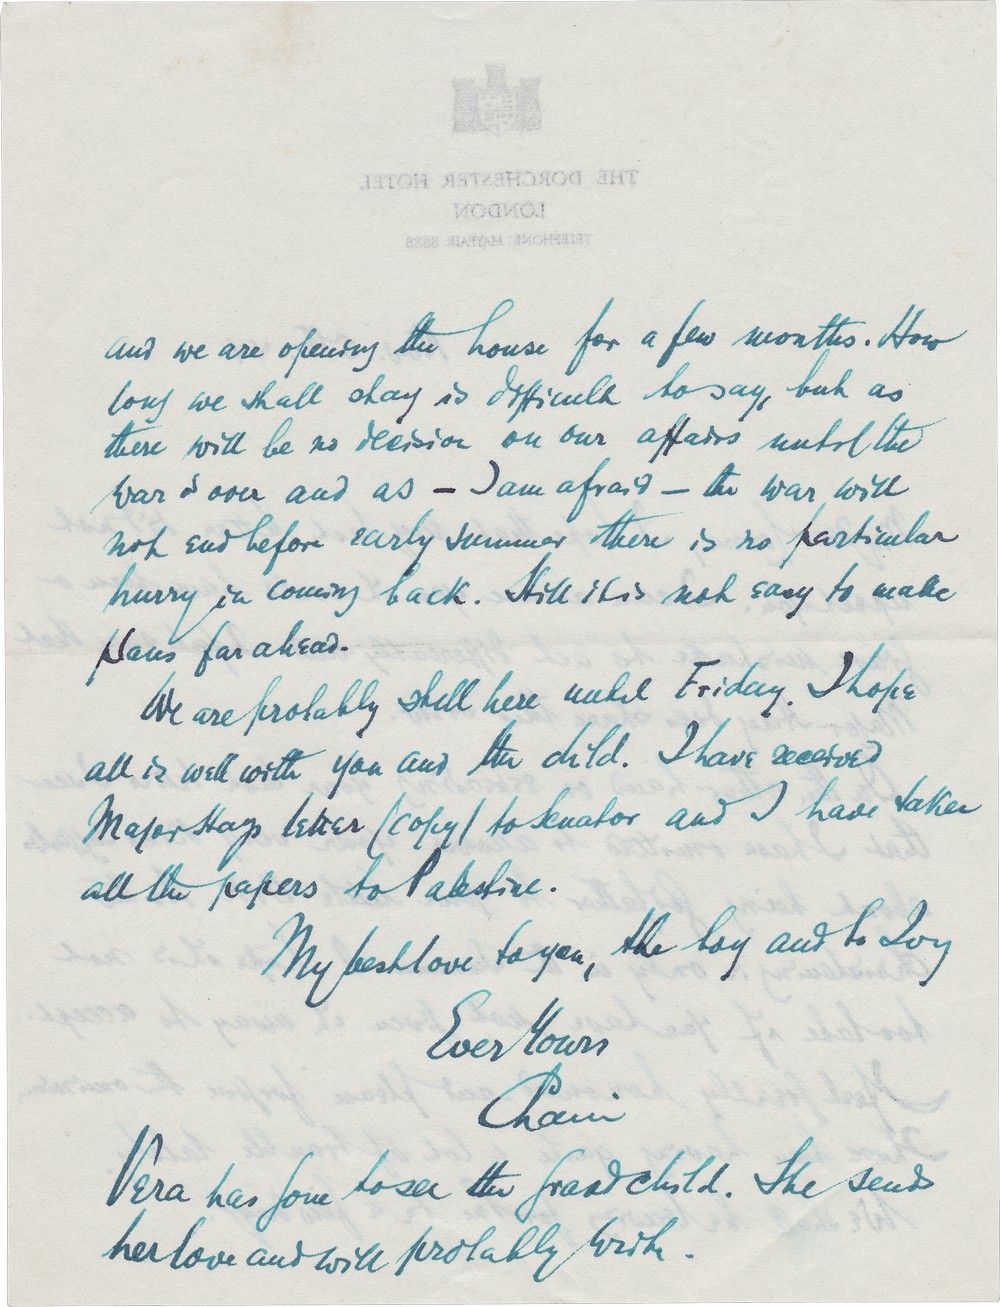 THE DORCHESTER HOTEL
LONDON
TELEPHONE: MAYFAIR 8888
and we are opening the house for a few months. How
long we shall stay is difficult to say, but as
there will be no decision on our affairs until the
war is over and as – I am afraid – the war will
not end before early summer there is no particular
hurry in coming back. Still it is not easy to make
plans far ahead.
We are probably still here until Friday. I hope
all is well with you and the child. I have received
Major Hays letter (copy) to Senator and I have taken
all the papers to Palestine.
My best love to you, the boy and to Ivy
Ever Yours
Chaim
Vera has gone to see the grandchild. She sends
her love and will probably write.